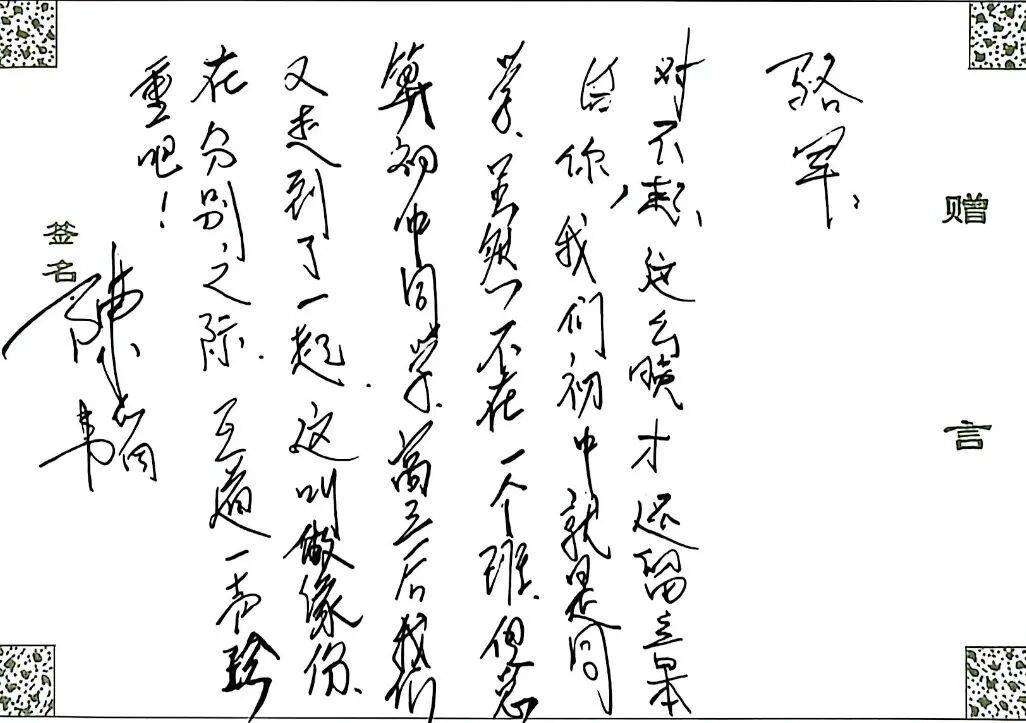 赠言
骆军:
对不起,这么晚才还留言录
给你,我们初中就是同
学.虽然不在一个班.但总
算初中同学.高三后我们
又走到了一起.这叫做缘份.
在分别之际.互道一声珍
重吧!
签名
陈